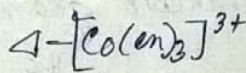 Δ-[Co(en)₃]³⁺